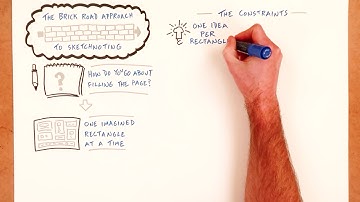 THE BRICK ROAD APPROACH
TO SKETCHNOTING
?
HOW DO YOU GO ABOUT
FILLING THE PAGE?
ONE IMAGINED
RECTANGLE
AT A TIME
- THE CONSTRAINTS -
ONE IDEA
PER
RECTANGL